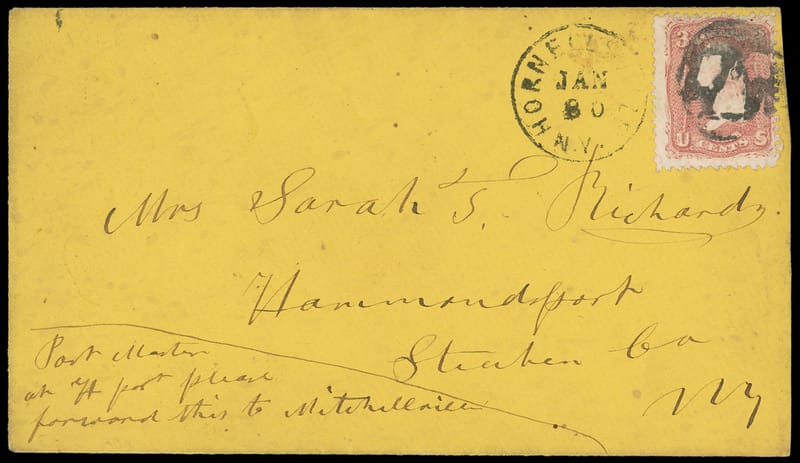 HORNELLSVILLE
JAN
30
N.Y.
3
U CENTS S
Mrs Sarah T. Richards.
Hammondsport
Steuben Co
NY
Post Master
at H port please
forward this to Mitchellville